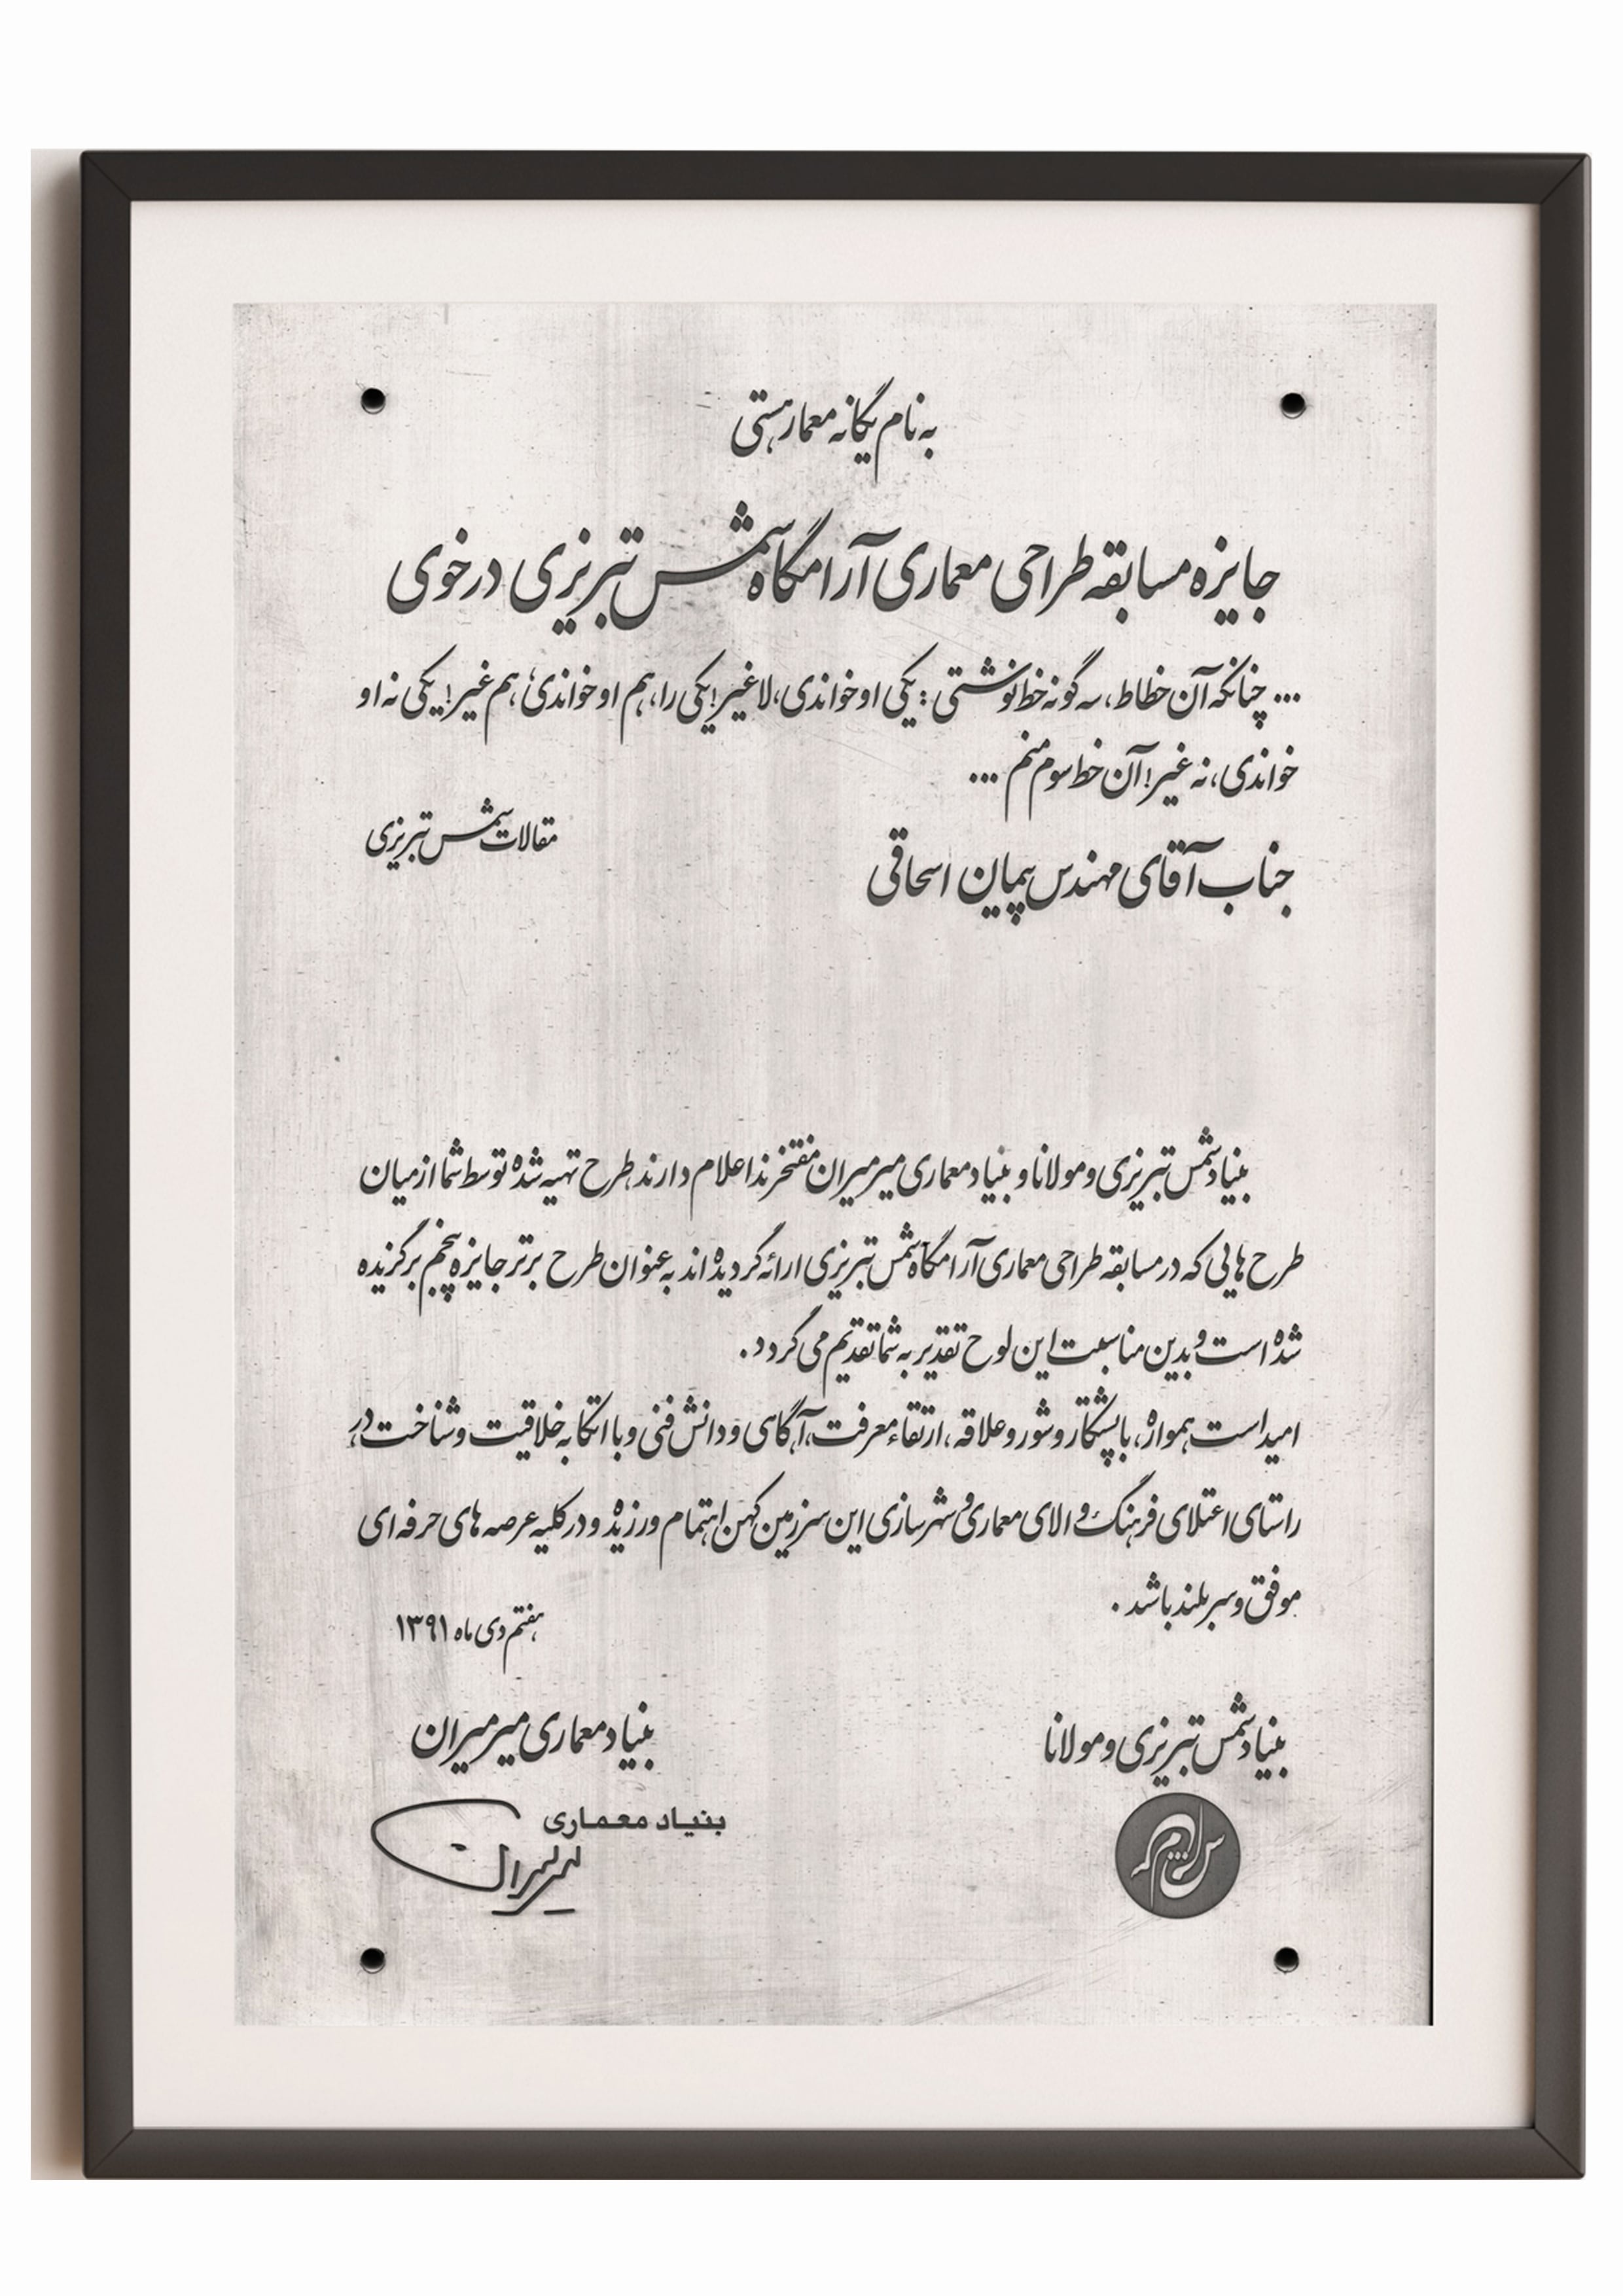 به نام یگانه معمار هستی
جایزه مسابقه طراحی معماری آرامگاه شمس تبریزی در خوی
... چنانکه آن خطاط، سه گونه خط نوشتی : یکی او خواندی، لا غیر! یکی را، هم او خواندی، هم غیر! یکی نه او
خواندی، نه غیر! آن خط سوم منم ...
مقالات شمس تبریزی
جناب آقای مهندس پیمان اسحاقی
بنیاد شمس تبریزی و مولانا و بنیاد معماری میرمیران مفتخرند اعلام دارند طرح تهیه شده توسط شما از میان
طرح هایی که در مسابقه طراحی معماری آرامگاه شمس تبریزی ارائه گردیده اند به عنوان طرح برتر جایزه پنجم برگزیده
شده است و بدین مناسبت این لوح تقدیر به شما تقدیم می گردد.
امید است همواره، با پشتکار و شور و علاقه، ارتقاء معرفت، آگاهی و دانش فنی و با اتکا به خلاقیت و شناخت در
راستای اعتلای فرهنگ والای معماری و شهرسازی این سرزمین کهن اهتمام ورزیده و در کلیه عرصه های حرفه ای
موفق و سربلند باشد.
هفتم دی ماه ۱۳۹۱
بنیاد شمس تبریزی و مولانا
بنیاد معماری میرمیران
بنیاد معماری
میرمیران